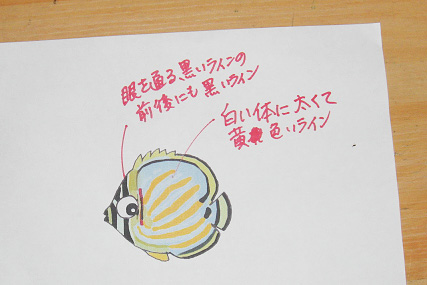 眼を通る、黒いラインの
前後にも黒いライン
白い体に太くて
黄色いライン